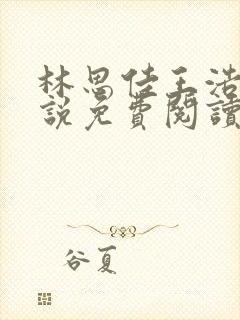 林思佳王浩
說免費閱讀
谷夏